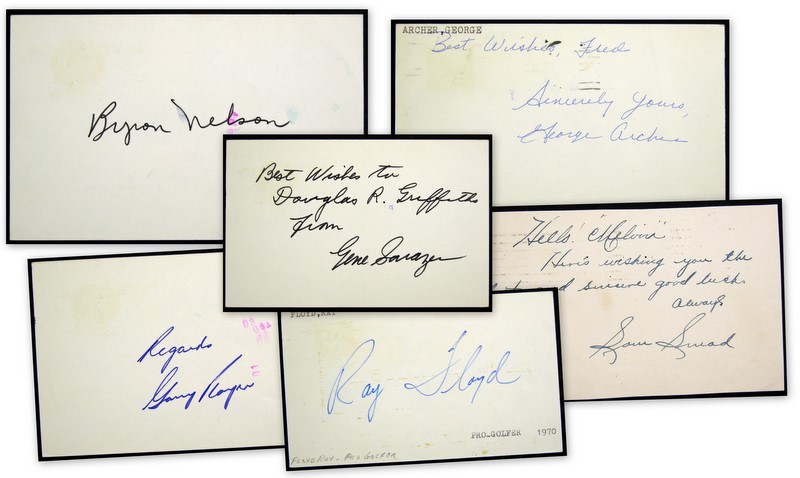 Byron Nelson
ARCHER,GEORGE
Best Wishes, Fred
Sincerely Yours,
George Archer
Best Wishes to
Douglas R. Griffiths
from
Gene Sarazen
Hello! "Melvin"
Here's wishing you the
and sincere good luck
always
Sam Snead
Regards
Gary Player
FLOYD,RAY
Ray Floyd
PRO-GOLFER 1970
FLOYD RAY - PRO GOLFER